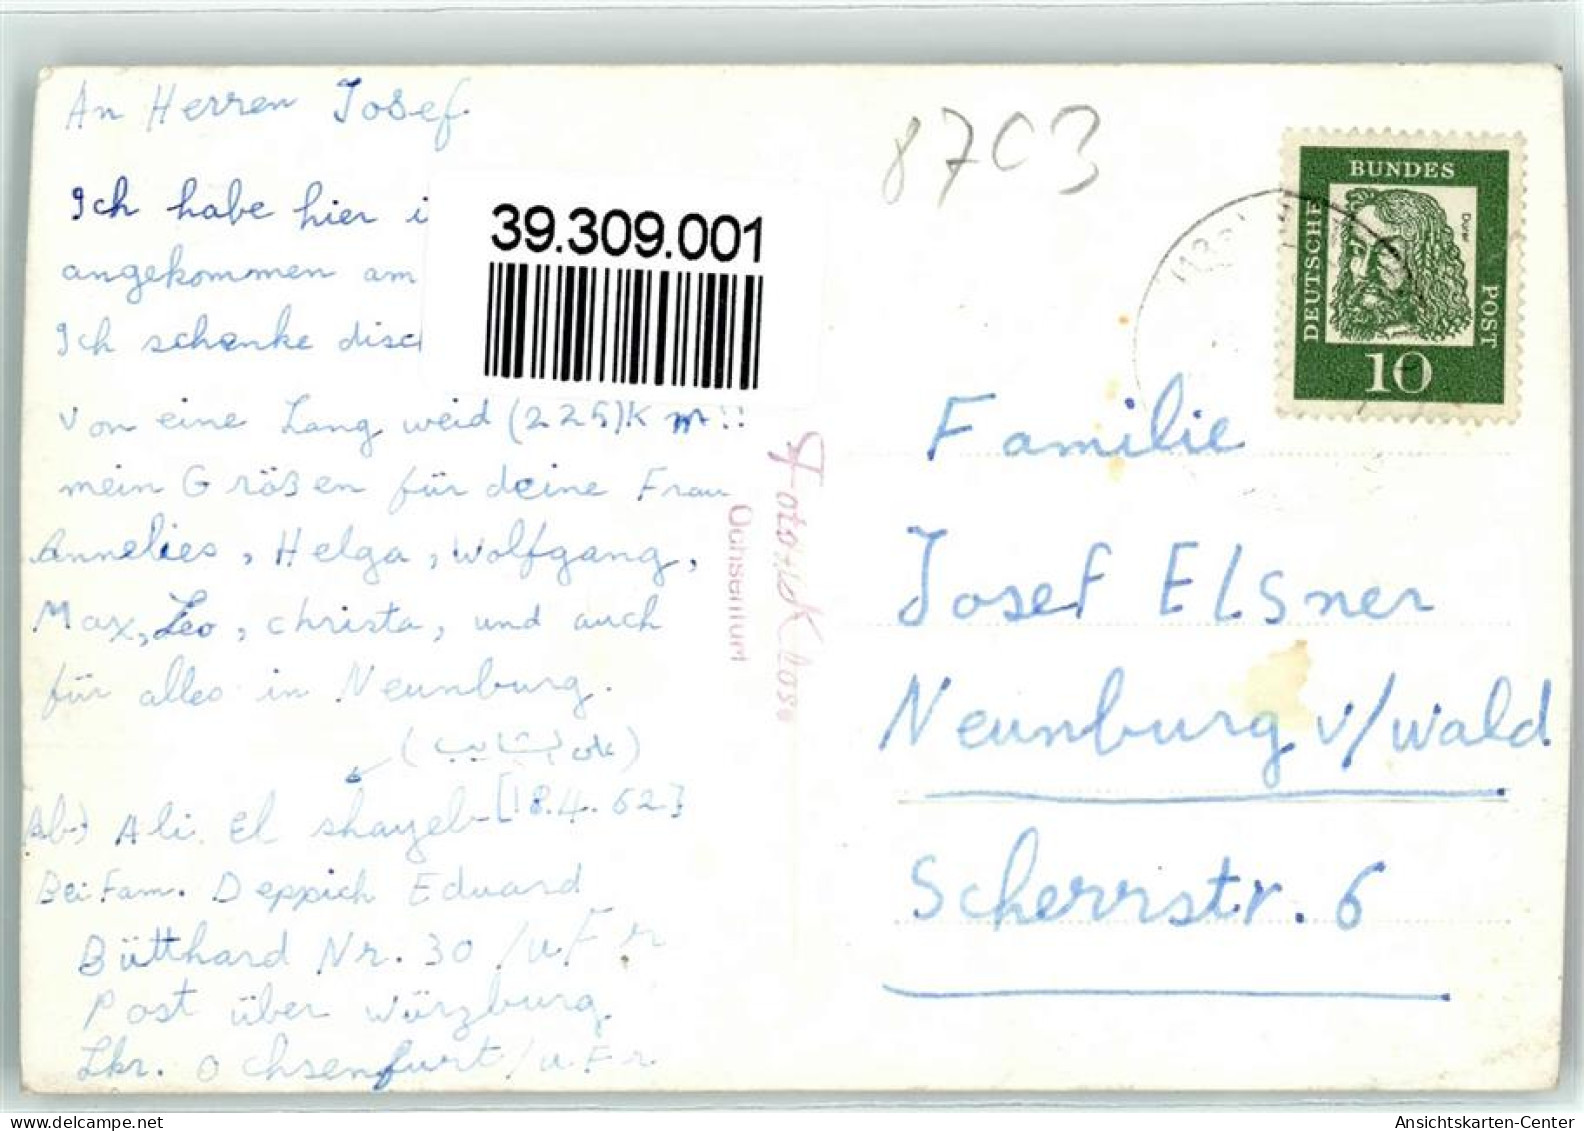 An Herren Josef.
Ich habe hier i
angekommen am
Ich schenke disc
von eine Lang weid (225)Km!!
mein Größen für deine Frau
Annelies, Helga, Wolfgang,
Max, Leo, christa, und auch
für alles in Neunburg.
(على شايب)
Ab) Ali. El shayeb [18.4.62]
Bei Fam. Deppich Eduard
Bütthard Nr. 30 /u.Fr
Post über würzburg.
Lkr. Ochsenfurt/u.Fr.
39.309.001
Ochsenfurt
8703
BUNDES
DEUTSCHE
POST
Dürer
10
Familie
Josef Elsner
Neunburg v/wald
Scherrstr. 6
Ansichtskarten-Center